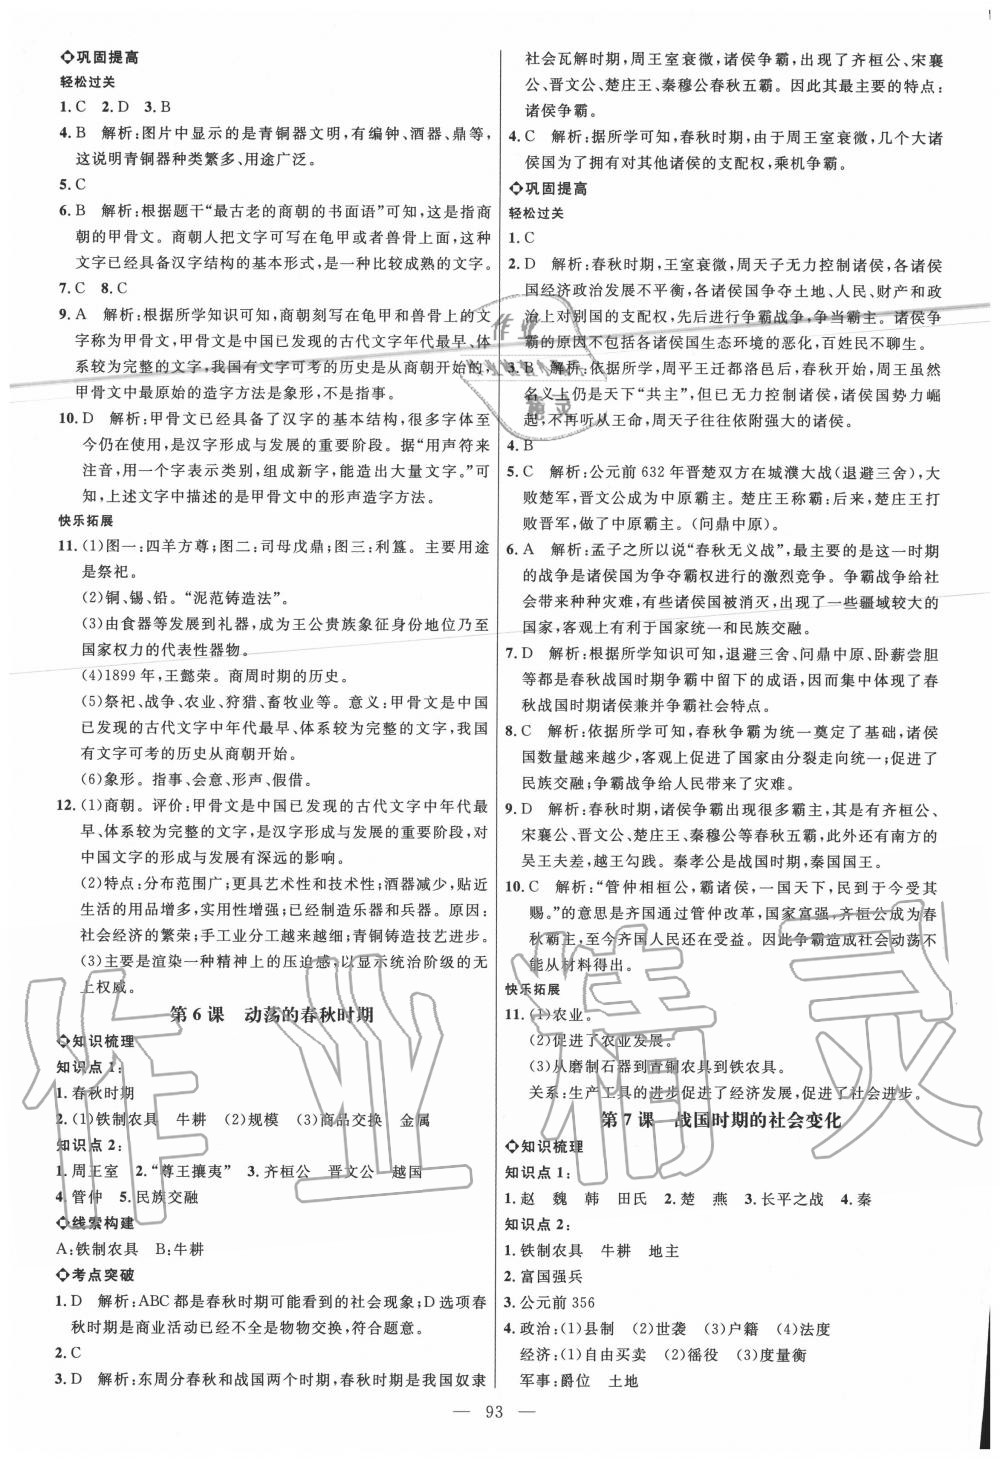 ◇巩固提高
轻松过关
1. C 2. D 3. B
4. B 解析:图片中显示的是青铜器文明,有编钟、酒器、鼎等,
这说明青铜器种类繁多、用途广泛。
5. C
6. B 解析:根据题干“最古老的商朝的书面语”可知,是指商
朝的甲骨文。商朝人把文字可写在龟甲或者兽骨上面,这种
文字已经具备汉字结构的基本形式,是一种比较成熟的文字。
7. C 8. C
9. A 解析:根据所学知识可知,商朝刻写在龟甲和兽骨上的文
字称为甲骨文,甲骨文是中国已发现的古代文字年代最早、体
系较为完整的文字,我国有文字可考的历史是从商朝开始的,
甲骨文中最原始的造字方法是象形,不是指事。
10. D 解析:甲骨文已经具备了汉字的基本结构,很多字体至
今仍在使用,是汉字形成与发展的重要阶段。据“用声符来
注音,用一个字表示类别,组成新字,能造出大量文字。”可
知,上述文字中描述的是甲骨文中的形声造字方法。
快乐拓展
11. (1)图一:四羊方尊;图二:司母戊鼎;图三:利簋。主要用途
是祭祀。
(2)铜、锡、铅。“泥范铸造法”。
(3)由食器等发展到礼器,成为王公贵族象征身份地位乃至
国家权力的代表性器物。
(4)1899年,王懿荣。商周时期的历史。
(5)祭祀、战争、农业、狩猎、畜牧业等。意义:甲骨文是中国
已发现的古代文字中年代最早、体系较为完整的文字,我国
有文字可考的历史从商朝开始。
(6)象形。指事、会意、形声、假借。
12. (1)商朝。评价:甲骨文是中国已发现的古代文字中年代最
早、体系较为完整的文字,是汉字形成与发展的重要阶段,对
中国文字的形成与发展有深远的影响。
(2)特点:分布范围广;更具艺术性和技术性;酒器减少,贴近
生活的用品增多,实用性增强;已经制造乐器和兵器。原因:
社会经济的繁荣;手工业分工越来越细;青铜铸造技艺进步。
(3)主要是渲染一种精神上的压迫感,以显示统治阶级的无
上权威。
第6课 动荡的春秋时期
◇知识梳理
知识点1:
1. 春秋时期
2. (1)铁制农具 牛耕 (2)规模 (3)商品交换 金属
知识点2:
1. 周王室 2. “尊王攘夷” 3. 齐桓公 晋文公 越国
4. 管仲 5. 民族交融
◇线索构建
A:铁制农具 B:牛耕
◇考点突破
1. D 解析:ABC都是春秋时期可能看到的社会现象;D选项春
秋时期是商业活动已经不全是物物交换,符合题意。
2. C
3. D 解析:东周分春秋和战国两个时期,春秋时期是我国奴隶
社会瓦解时期,周王室衰微,诸侯争霸,出现了齐桓公、宋襄
公、晋文公、楚庄王、秦穆公春秋五霸。因此其最主要的特点:
诸侯争霸。
4. C 解析:据所学可知,春秋时期,由于周王室衰微,几个大诸
侯国为了拥有对其他诸侯的支配权,乘机争霸。
◇巩固提高
轻松过关
1. C
2. D 解析:春秋时期,王室衰微,周天子无力控制诸侯,各诸侯
国经济政治发展不平衡,各诸侯国争夺土地、人民、财产和政
治上对别国的支配权,先后进行争霸战争,争当霸主。诸侯争
霸的原因不包括各诸侯国生态环境的恶化,百姓民不聊生。
3. B 解析:依据所学,周平王迁都洛邑后,春秋时期,周王虽然
名义上仍是天下“共主”,但已无力控制诸侯。诸侯国势力崛
起,不再听从王命,周天子往往依附强大的诸侯。
4. B
5. C 解析:公元前632年晋楚双方在城濮大战(退避三舍),大
败楚军,晋文公成为中原霸主。楚庄王称霸:后来,楚庄王打
败晋军,做了中原霸主。(问鼎中原)。
6. A 解析:孟子之所以说“春秋无义战”,最主要的是这一时期
的战争是诸侯国为争夺霸权进行的激烈竞争。争霸战争给社
会带来种种灾难,有些诸侯国被消灭,出现了一些疆域较大的
国家,客观上有利于国家统一和民族交融。
7. D 解析:根据所学知识可知,退避三舍、问鼎中原、卧薪尝胆
等都是春秋战国时期争霸中留下的成语,因而集中体现了春
秋战国时期诸侯兼并争霸社会特点。
8. C 解析:依据所学可知,春秋争霸为统一奠定了基础,诸侯
国数量越来越少,客观上促进了国家由分裂走向统一,促进了
民族交融;争霸战争给人民带来了灾难。
9. D 解析:春秋时期,诸侯争霸出现很多霸主,其是有齐桓公、
宋襄公、晋文公、楚庄王、秦穆公等春秋五霸,此外还有南方的
吴王夫差,越王勾践。秦孝公是战国时期,秦国国王。
10. C 解析:“管仲相桓公,霸诸侯,一国天下,民到于今受其
赐。”的意思是齐国通过管仲改革,国家富强,齐桓公成为春
秋霸主,至今齐国人民还在受益。因此争霸造成社会动荡不
能从材料得出。
快乐拓展
11. (1)农业。
(2)促进了农业发展。
(3)从磨制石器到青铜农具到铁农具。
关系:生产工具的进步促进了经济发展,促进了社会进步。
第7课 战国时期的社会变化
◇知识梳理
知识点1:
1. 赵 魏 韩 田氏 2. 楚 燕 3. 长平之战 4. 秦
知识点2:
1. 铁制农具 牛耕 地主
2. 富国强兵
3. 公元前356
4. 政治:(1)县制 (2)世袭 (3)户籍 (4)法度
经济:(1)自由买卖 (2)徭役 (3)度量衡
军事:爵位 土地
— 93 —
作业精灵